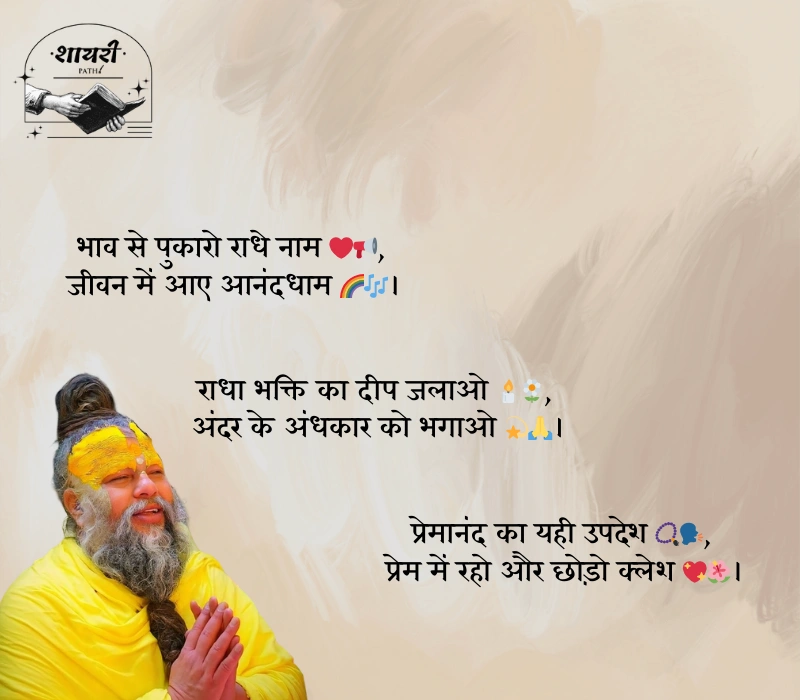 शायरी
PATH
भाव से पुकारो राधे नाम ❤️📢,
जीवन में आए आनंदधाम 🌈🎶।
राधा भक्ति का दीप जलाओ 🕯️🌼,
अंदर के अंधकार को भगाओ 💫🙏।
प्रेमानंद का यही उपदेश 📿🗣️,
प्रेम में रहो और छोड़ो क्लेश 💖🌺।